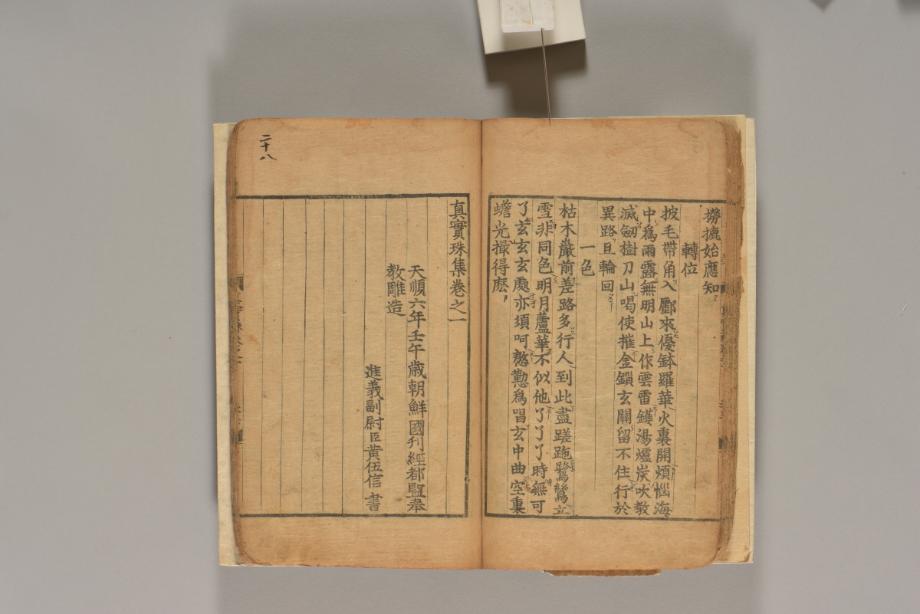 撈摝始應知
轉位
披毛帶角入鄽來優鉢羅華火裏開煩惱海
中爲雨露無明山上作雲雷鑊湯爐炭吹敎
滅劒樹刀山喝使摧金鎖玄關留不住行於
異路且輪回
一色
枯木巖前差路多行人到此盡蹉跎鷺鷥立
雪非同色明月蘆華不似他了了了時無可
了玄玄玄處亦須呵慇懃爲唱玄中曲空裏
蟾光撮得麽
真實珠集卷之一
天順六年壬午歲朝鮮國刊經都監奉
教雕造
進義副尉臣黃伍信書
二十八